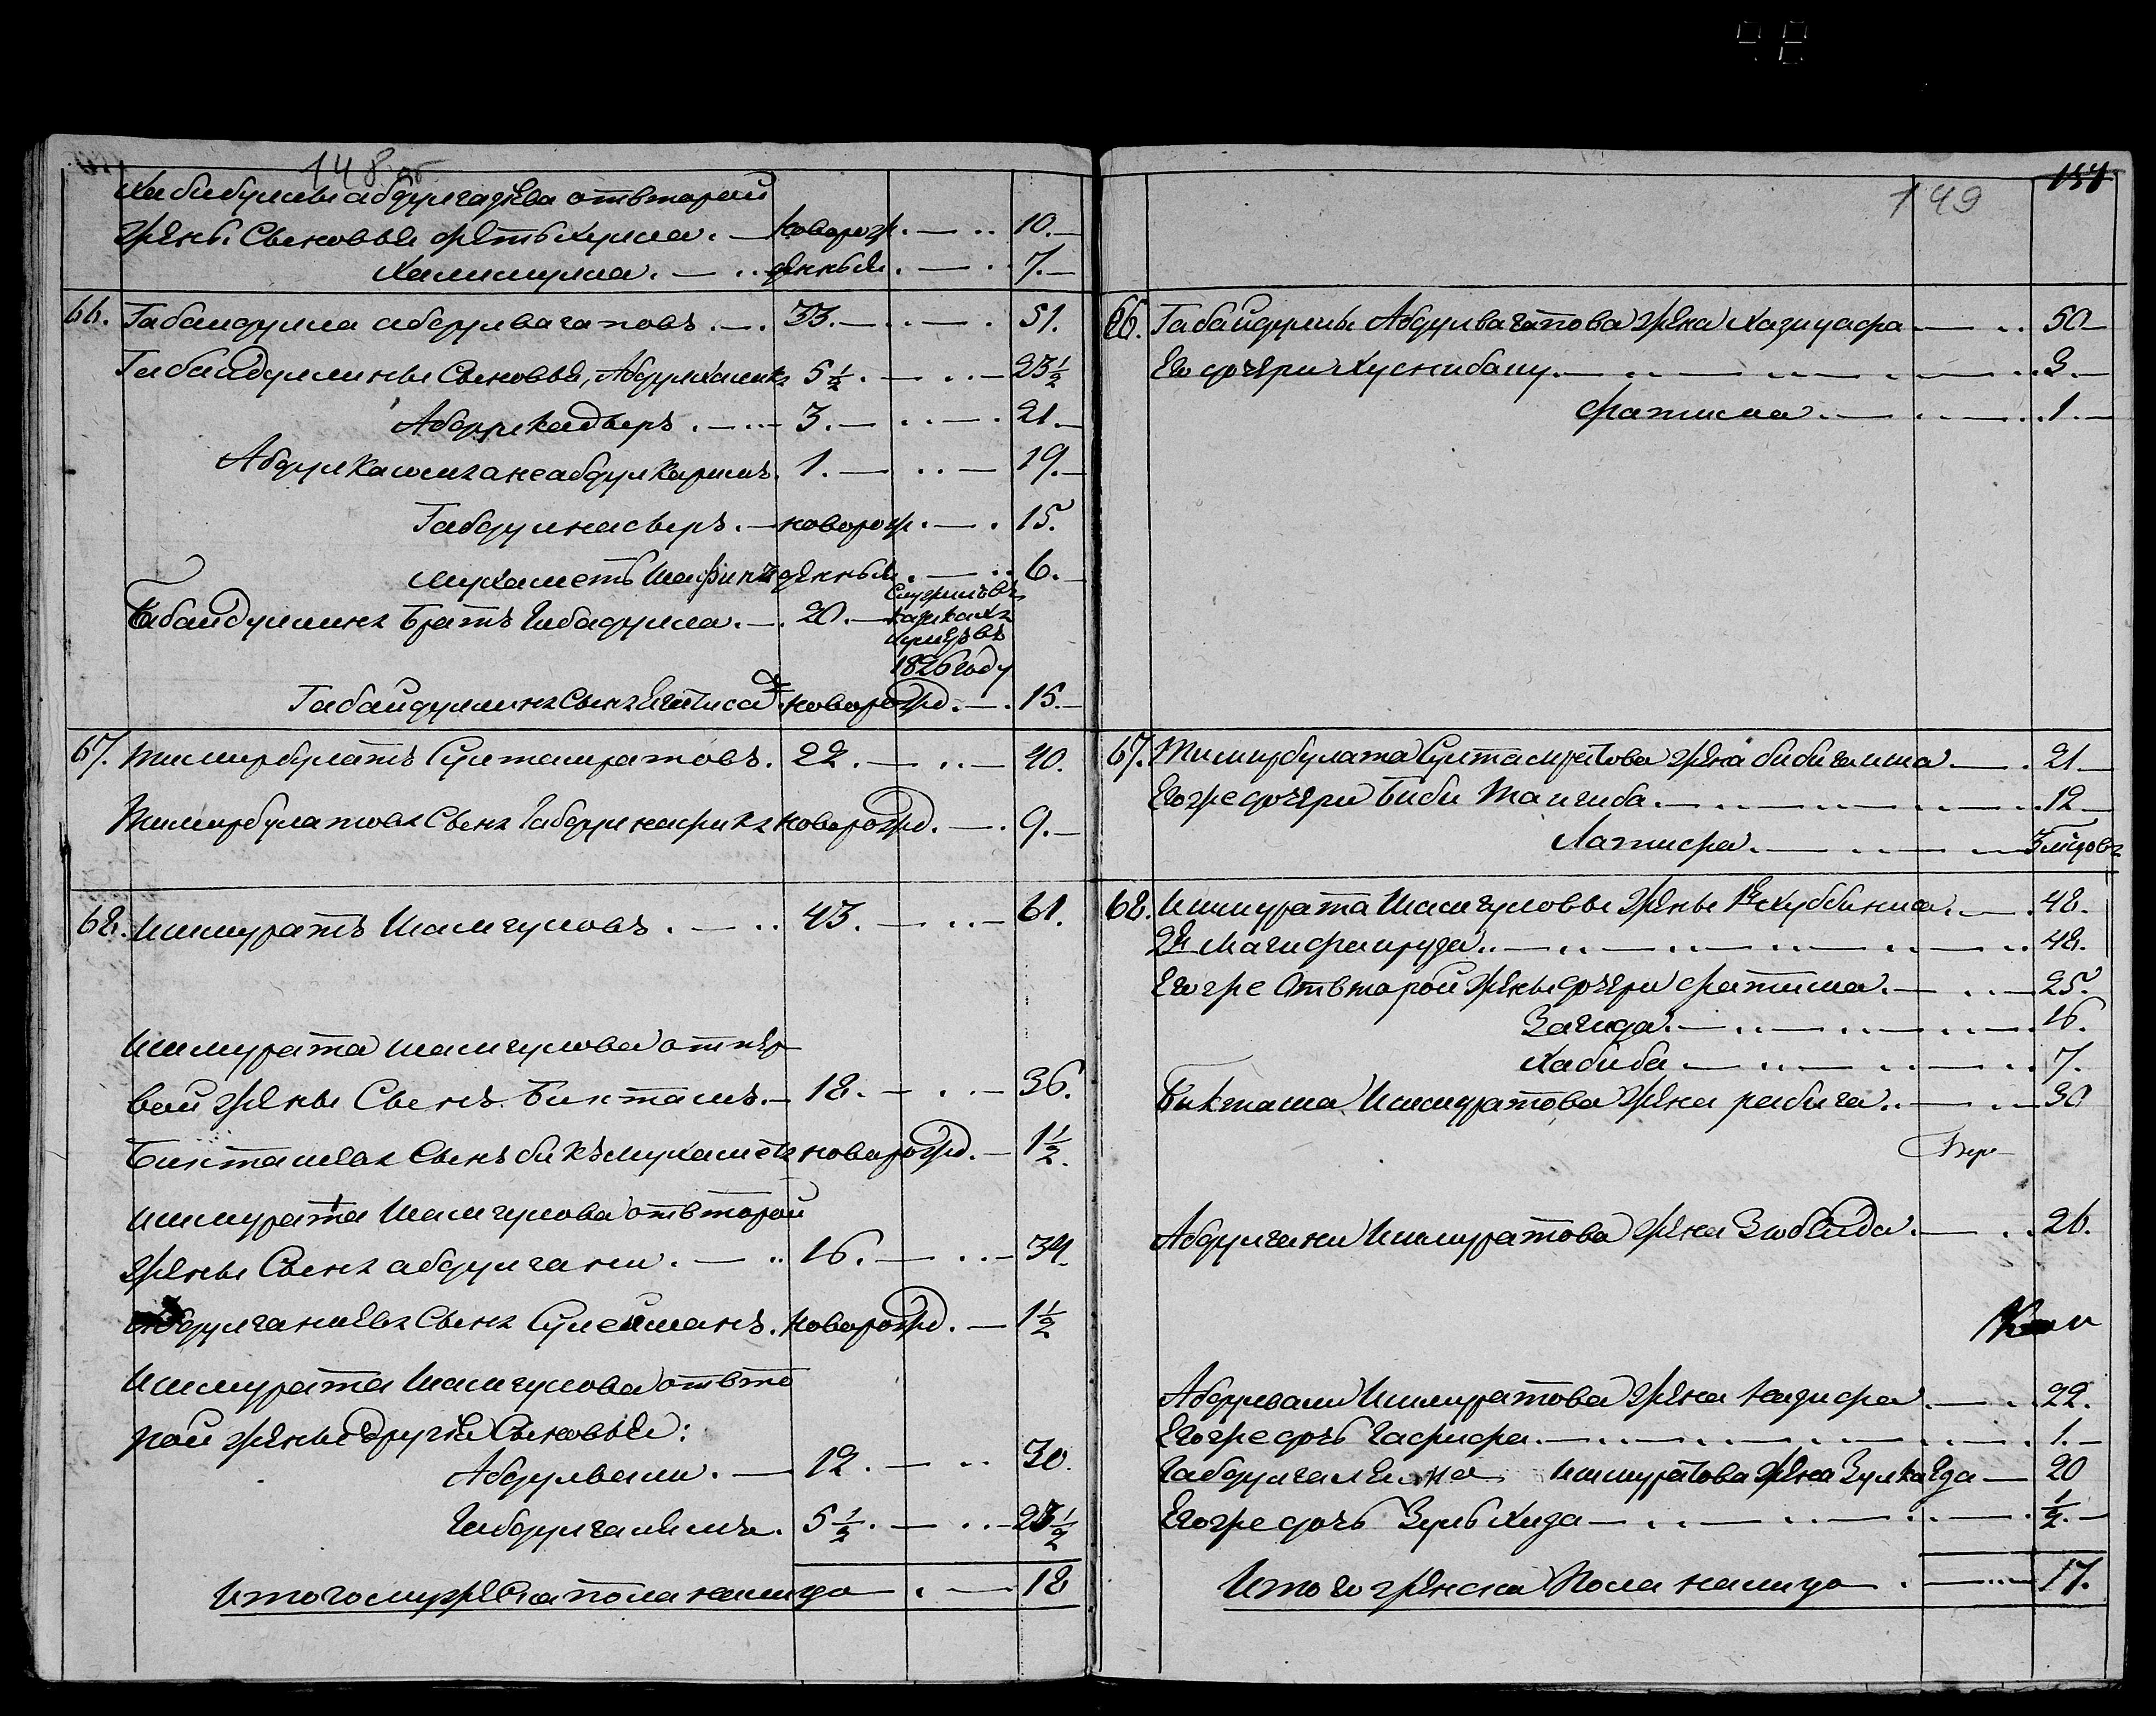 148 об
Хабибуллы абдулгазѣва отвторой
жены Сыновья Фетьхулла. — новорож. — .. 10. —
Халиулла. — .. денныя. — . 7. —
66. Габайдулла абдулвагаповъ. — . 33. — .. — . 51.
Габайдуллины Сыновья, Абдулхаликъ 5 ½. — .. — 23 ½
Абдулкадыръ. — .. — 3. — .. — . 21. —
Абдулкашиганеабдулкаримъ. 1. — .. — 19. —
Габдулнасыръ. — новорож. — . 15.
мухаметьшафикъ денныя. — .. 6. —
Габайдуллинъ Братъ Гибадулла. — . 20. —
1826 году
Габайдуллинъ Сынъ новорожд. — . 15. —
67. Тимирбулатъ Султамратовъ. 22. — .. — 40.
Тимирбулатовъ Сынъ Габдулнафикъ новорожд. — . 9. —
68. Ишмуратъ Шамгуловъ. — .. 43. — .. — 61.
Ишмурата шамгулова отпер
вой жены Сынъ Бикташъ. — 18. — . . — 36.
Бикташевъ Сынъ бикъмухаметъ новорожд. — 1 ½.
Ишмурата Шамгулова отвторой
жены Сынъ абдулгани. — .. 16. — .. — 34.
Абдулганиевъ Сынъ Сулейманъ. новорожд. — 1 ½
Ишмурата Шамгулова отвто
рой жены другiе Сыновья:
Абдулвали. — 12. — .. 30.
Габдулгалимъ. 5 ½. — .. — 23 ½
Итого мужеска пола налицо — . — 18
149
151
66. Габайдуллы Абдулвагапова жена Хазицафа — .. 50 —
Его дочери Хуснибану. — .. — .. — .. 3. —
Фатима. — .. — .. 1. —
67. Тимирбулата Султамратова жена бибигаиша — . 21 —
Егоже дочери Биби Маигиба. — .. — .. 12 —
Латифа. — .. — .. — 3 мѣсецовъ
68. Ишмурата Шамгуловы жены 1я Хуббиниса. — . 48.
2я Магифируза. — .. — .. — .. 48.
Егоже Отвторой жены дочери фатима. — .. — 25.
Загида. — .. — .. — 16.
Хабиба — .. — .. 7.
Бикташа Ишмуратова жена рабига. — .. — 30
Абдулгани Ишмуратова жена Зюбейда. — . . 26.
Абдулвали Ишмуратова жена Назифа. — . 22.
Егоже дочь Гафифа. — .. — .. 1. —
Габдулгалимна ишмуратова жена Зулкаеда — 20
Егоже дочь Зульхиза — .. — .. — ½. —
Итого женска Пола налицо . — .. — 17.